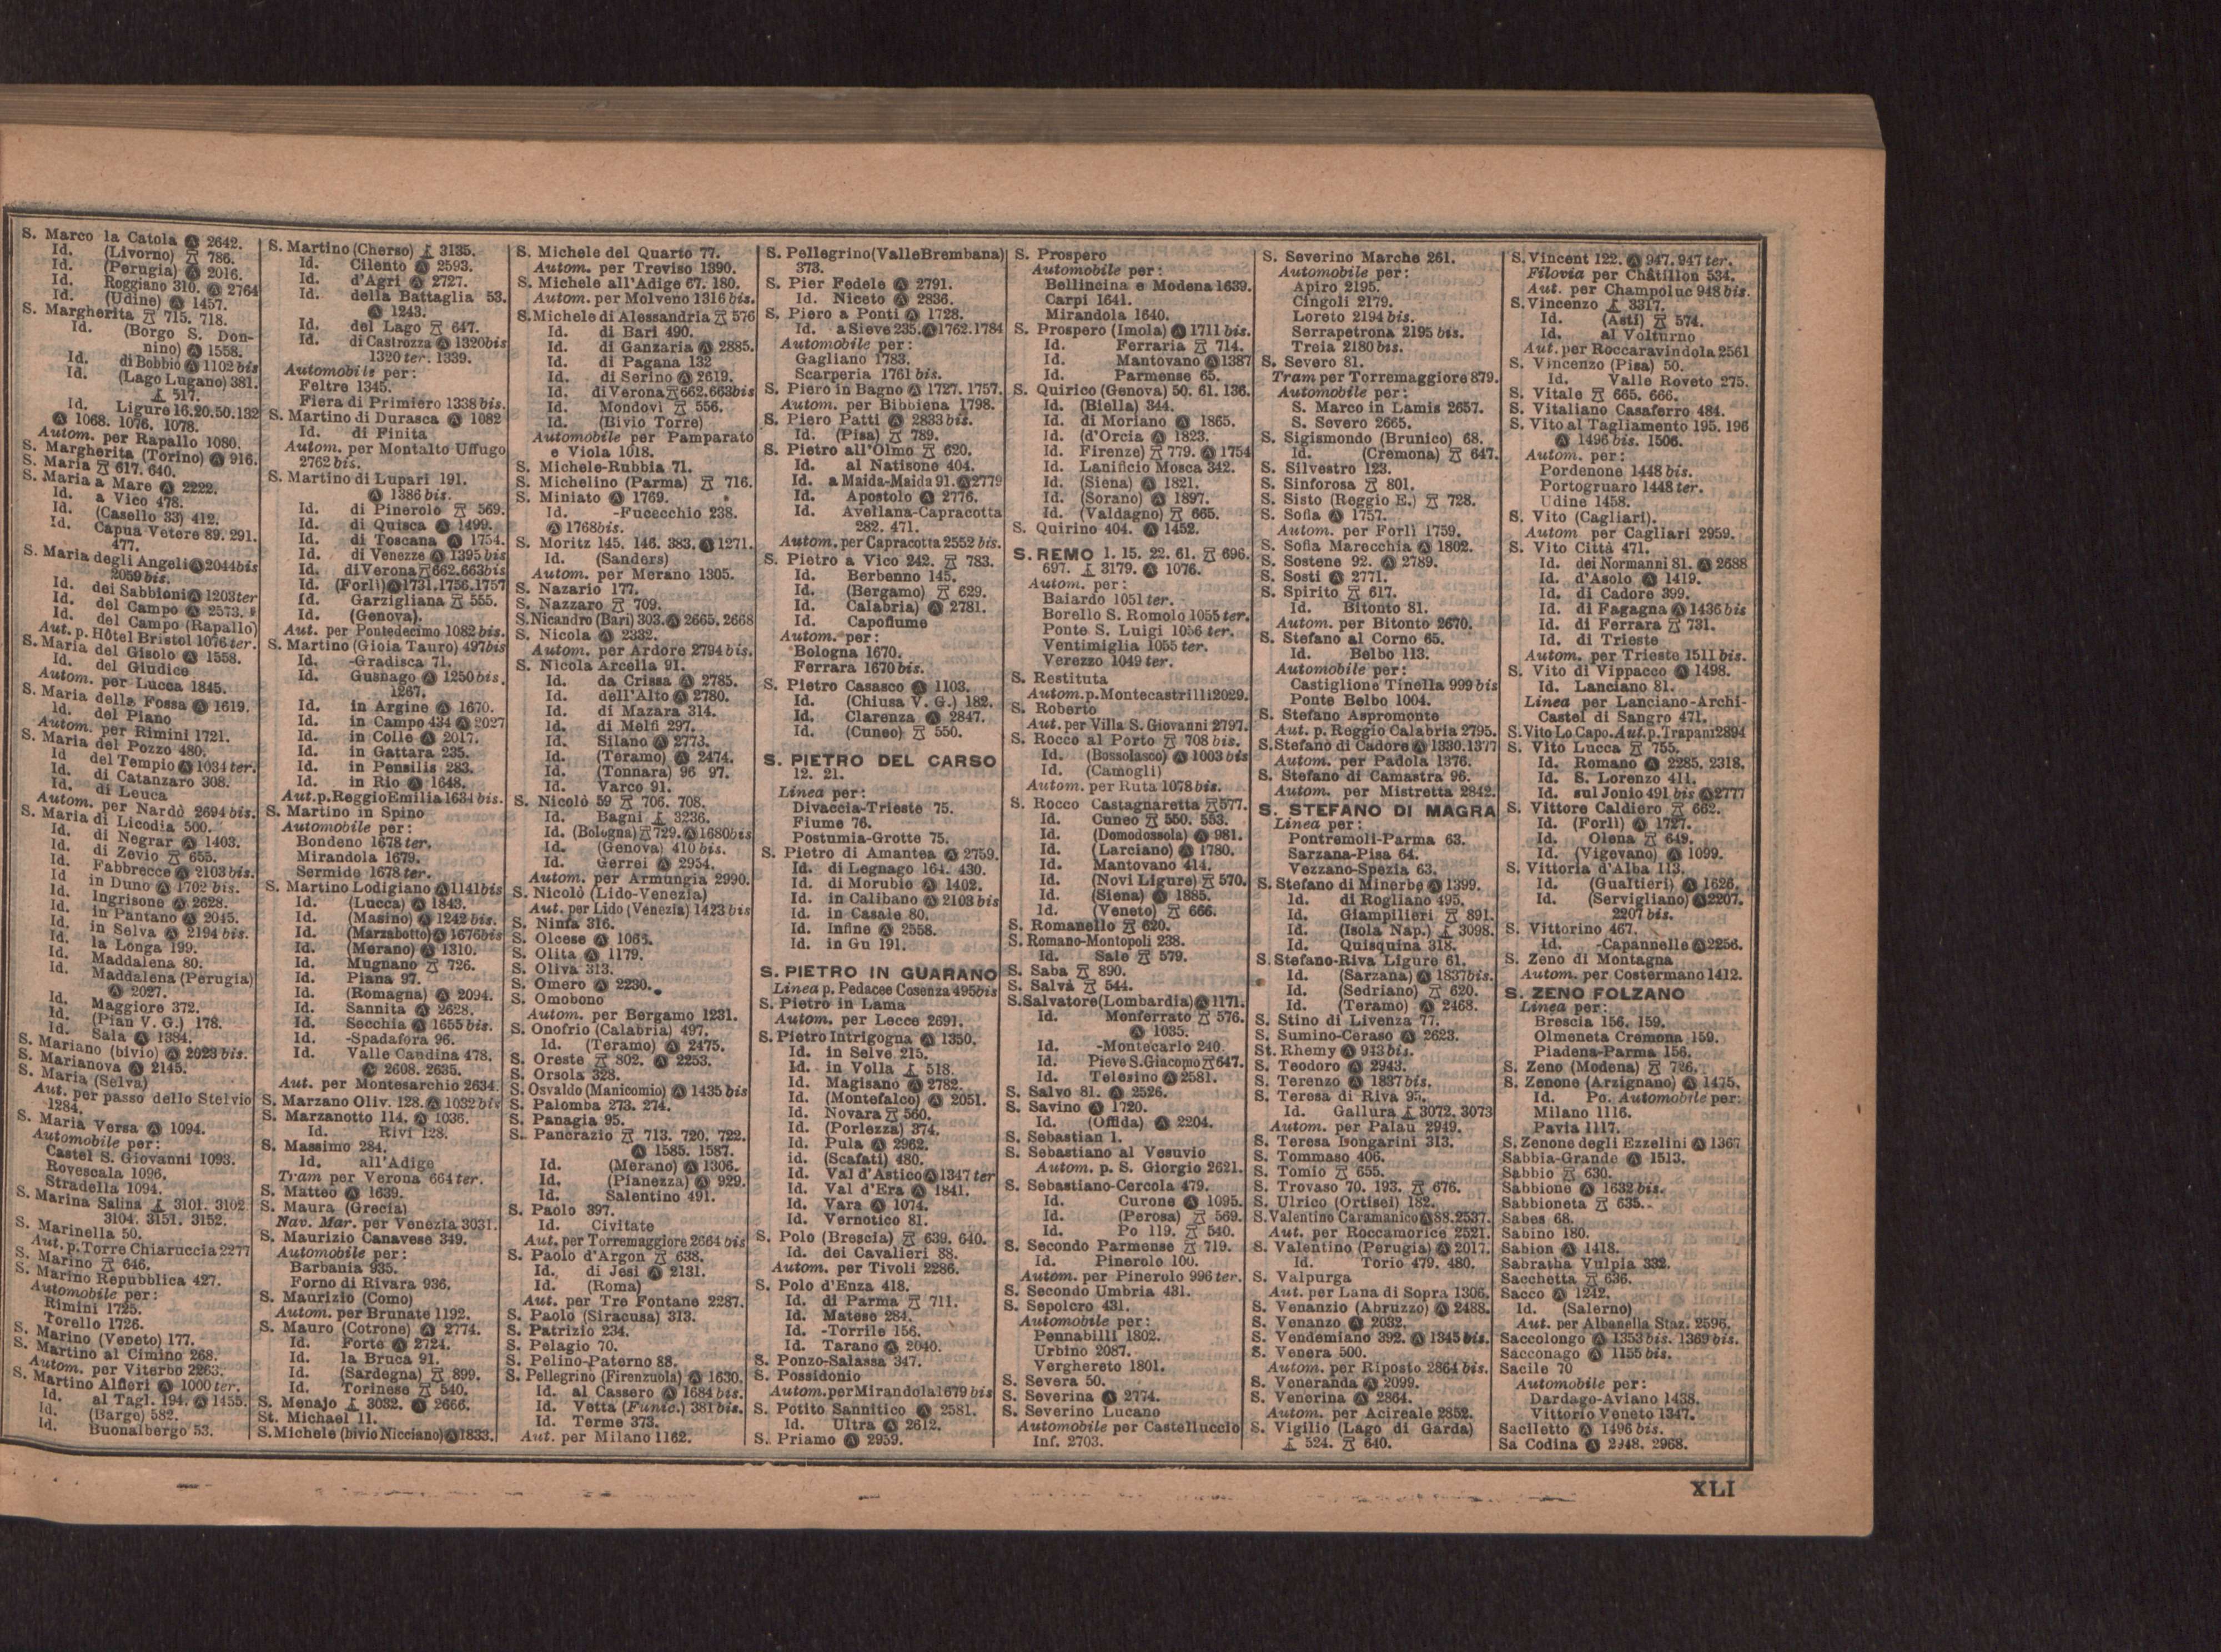 S. Marco la Catola Ⓐ 2642.
Id. (Livorno) 786.
Id. (Perugia) Ⓐ 2016.
Id. Roggiano 310. Ⓐ 2764
Id. (Udine) Ⓐ 1457.
S. Margherita 715. 718.
Id. (Borgo S. Don-
nino) Ⓐ 1558.
Id. di Bobbio Ⓐ 1102 bis
Id. (Lago Lugano) 381.
517.
Id. Ligure 16.20.50.132
Ⓐ 1068. 1076. 1078.
Autom. per Rapallo 1080.
S. Margherita (Torino) Ⓐ 916.
S. Maria 617. 640.
S. Maria a Mare Ⓐ 2222.
Id. a Vico 478.
Id. (Casello 33) 412.
Id. Capua Vetere 89. 291.
477.
S. Maria degli Angeli Ⓐ 2044bis
2059 bis.
Id. dei Sabbioni Ⓐ 1203ter
Id. del Campo Ⓐ 2573.
Id. del Campo (Rapallo)
Aut. p. Hôtel Bristol 1076 ter.
S. Maria del Gisolo Ⓐ 1558.
Id. del Giudice
Autom. per Lucca 1845.
S. Maria della Fossa Ⓐ 1619.
Id. del Piano
Autom. per Rimini 1721.
S. Maria del Pozzo 480.
Id del Tempio Ⓐ 1034 ter.
Id. di Catanzaro 308.
Id. di Leuca
Autom. per Nardò 2694 bis.
S. Maria di Licodia 500.
Id. di Negrar Ⓐ 1403.
Id. di Zevio 655.
Id. Fabbrecce Ⓐ 2103 bis.
Id in Duno Ⓐ 1702 bis.
Id. Ingrisone Ⓐ 2628.
Id. in Pantano Ⓐ 2045.
Id. in Selva Ⓐ 2194 bis.
Id. la Longa 199.
Id. Maddalena 80.
Id. Maddalena (Perugia)
Ⓐ 2027.
Id. Maggiore 372.
Id. (Pian V. G.) 178.
Id. Sala Ⓐ 1384.
S. Mariano (bivio) Ⓐ 2023 bis.
S. Marianova Ⓐ 2145.
S. Maria (Selva)
Aut. per passo dello Stelvio
1284.
S. Maria Versa Ⓐ 1094.
Automobile per:
Castel S. Giovanni 1093.
Rovescala 1096.
Stradella 1094.
S. Marina Salina 3101. 3102
3104. 3151. 3152.
S. Marinella 50.
Aut. p. Torre Chiaruccia 2277
S. Marino 646.
S. Marino Repubblica 427.
Automobile per:
Rimini 1725.
Torello 1726.
S. Marino (Veneto) 177.
S. Martino al Cimino 268.
Autom. per Viterbo 2263.
S. Martino Alfieri Ⓐ 1000 ter.
Id. al Tagl. 194. Ⓐ 1455.
Id. (Barge) 582.
Id. Buonalbergo 53.
S. Martino (Cherso) 3135.
Id. Cilento Ⓐ 2593.
Id. d'Agri Ⓐ 2727.
Id. della Battaglia 53.
Ⓐ 1243.
Id. del Lago 647.
Id. di Castrozza Ⓐ 1320bis
1320 ter. 1339.
Automobile per:
Feltre 1345.
Fiera di Primiero 1338 bis.
S. Martino di Durasca Ⓐ 1082
Id. di Finita
Autom. per Montalto Uffugo
2762 bis.
S. Martino di Lupari 191.
Ⓐ 1386 bis.
Id. di Pinerolo 569.
Id. di Quisca Ⓐ 1499.
Id. di Toscana Ⓐ 1754.
Id. di Venezze Ⓐ 1395 bis
Id. di Verona 662.663bis
Id. (Forlì) Ⓐ 1731.1756.1757
Id. Garzigliana 555.
Id. (Genova).
Aut. per Pontedecimo 1082 bis.
S. Martino (Gioia Tauro) 497bis
Id. -Gradisca 71.
Id. Gusnago Ⓐ 1250 bis.
1267.
Id. in Argine Ⓐ 1670.
Id. in Campo 434 Ⓐ 2027
Id. in Colle Ⓐ 2017.
Id. in Gattara 235.
Id. in Pensilis 283.
Id. in Rio Ⓐ 1648.
Aut. p. Reggio Emilia 1634 bis.
S. Martino in Spino
Automobile per:
Bondeno 1678 ter.
Mirandola 1679.
Sermide 1678 ter.
S. Martino Lodigiano Ⓐ 1141bis
Id. (Lucca) Ⓐ 1843.
Id. (Masino) Ⓐ 1242 bis.
Id. (Marzabotto) Ⓐ 1676bis
Id. (Merano) Ⓐ 1310.
Id. Mugnano 726.
Id. Piana 97.
Id. (Romagna) Ⓐ 2094.
Id. Sannita Ⓐ 2628.
Id. Secchia Ⓐ 1655 bis.
Id. -Spadafora 96.
Id. Valle Caudina 478.
Ⓐ 2608. 2635.
Aut. per Montesarchio 2634.
S. Marzano Oliv. 128. Ⓐ 1032 bis
S. Marzanotto 114. Ⓐ 1036.
Id. Rivi 128.
S. Massimo 284.
Id. all'Adige
Tram per Verona 664 ter.
S. Matteo Ⓐ 1639.
S. Maura (Grecia)
Nav. Mar. per Venezia 3031.
S. Maurizio Canavese 349.
Automobile per:
Barbania 935.
Forno di Rivara 936.
S. Maurizio (Como)
Autom. per Brunate 1192.
S. Mauro (Cotrone) Ⓐ 2774.
Id. Forte Ⓐ 2724.
Id. la Bruca 91.
Id. (Sardegna) 899.
Id. Torinese 540.
S. Menajo 3032. Ⓐ 2666.
St. Michael 11.
S. Michele (bivio Nicciano) Ⓐ 1833.
S. Michele del Quarto 77.
Autom. per Treviso 1390.
S. Michele all'Adige 67. 180.
Autom. per Molveno 1316 bis.
S. Michele di Alessandria 576
Id. di Bari 490.
Id. di Ganzaria Ⓐ 2885.
Id. di Pagana 132
Id. di Serino Ⓐ 2619.
Id. di Verona 662.663bis
Id. Mondovì 556.
Id. (Bivio Torre)
Automobile per Pamparato
e Viola 1018.
S. Michele-Rubbia 71.
S. Michelino (Parma) 716.
S. Miniato Ⓐ 1769.
Id. -Fucecchio 238.
Ⓐ 1768bis.
S. Moritz 145. 146. 383. Ⓐ 1271.
Id. (Sanders)
Autom. per Merano 1305.
S. Nazario 177.
S. Nazzaro 709.
S. Nicandro (Bari) 303. Ⓐ 2665. 2668
S. Nicola Ⓐ 2332.
Autom. per Ardore 2794 bis.
S. Nicola Arcella 91.
Id. da Crissa Ⓐ 2785.
Id. dell'Alto Ⓐ 2780.
Id. di Mazara 314.
Id. di Melfi 297.
Id. Silano Ⓐ 2773.
Id. (Teramo) Ⓐ 2474.
Id. (Tonnara) 96 97.
Id. Varco 91.
S. Nicolò 59 706. 708.
Id. Bagni 3236.
Id. (Bologna) 729. Ⓐ 1680bis
Id. (Genova) 410 bis.
Id. Gerrei Ⓐ 2954.
Autom. per Armungia 2990.
S. Nicolò (Lido-Venezia)
Aut. per Lido (Venezia) 1423 bis
S. Ninfa 316.
S. Olcese Ⓐ 1065.
S. Olita Ⓐ 1179.
S. Oliva 313.
S. Omero Ⓐ 2230.
S. Omobono
Autom. per Bergamo 1231.
S. Onofrio (Calabria) 497.
Id. (Teramo) Ⓐ 2475.
S. Oreste 802. Ⓐ 2253.
S. Orsola 328.
S. Osvaldo (Manicomio) Ⓐ 1435 bis
S. Palomba 273. 274.
S. Panagia 95.
S. Pancrazio 713. 720. 722.
Ⓐ 1585. 1587.
Id. (Merano) Ⓐ 1306.
Id. (Pianezza) Ⓐ 929.
Id. Salentino 491.
S. Paolo 397.
Id. Civitate
Aut. per Torremaggiore 2664 bis
S. Paolo d'Argon 638.
Id. di Jesi Ⓐ 2131.
Id. (Roma)
Aut. per Tre Fontane 2287.
S. Paolo (Siracusa) 313.
S. Patrizio 234.
S. Pelagio 70.
S. Pelino-Paterno 88.
S. Pellegrino (Firenzuola) Ⓐ 1630.
Id. al Cassero Ⓐ 1684 bis.
Id. Vetta (Funic.) 381 bis.
Id. Terme 373.
Aut. per Milano 1162.
S. Pellegrino (Valle Brembana)
373.
S. Pier Fedele Ⓐ 2791.
Id. Niceto Ⓐ 2836.
S. Piero a Ponti Ⓐ 1728.
Id. a Sieve 235. Ⓐ 1762.1784
Automobile per:
Gagliano 1783.
Scarperia 1761 bis.
S. Piero in Bagno Ⓐ 1727. 1757.
Autom. per Bibbiena 1798.
S. Piero Patti Ⓐ 2833 bis.
Id. (Pisa) 789.
S. Pietro all'Olmo 620.
Id. al Natisone 404.
Id. a Maida-Maida 91. Ⓐ 2779
Id. Apostolo Ⓐ 2776.
Id. Avellana-Capracotta
282. 471.
Autom. per Capracotta 2552 bis.
S. Pietro a Vico 242. 783.
Id. Berbenno 145.
Id. (Bergamo) 629.
Id. Calabria) Ⓐ 2781.
Id. Capofiume
Autom. per:
Bologna 1670.
Ferrara 1670 bis.
S. Pietro Casasco Ⓐ 1103.
Id. (Chiusa V. G.) 182.
Id. Clarenza Ⓐ 2847.
Id. (Cuneo) 550.
S. PIETRO DEL CARSO
12. 21.
Linea per:
Divaccia-Trieste 75.
Fiume 76.
Postumia-Grotte 75.
S. Pietro di Amantea Ⓐ 2759.
Id. di Legnago 164. 430.
Id. di Morubio Ⓐ 1402.
Id. in Calibano Ⓐ 2103 bis
Id. in Casale 80.
Id. Infine Ⓐ 2558.
Id. in Gu 191.
S. PIETRO IN GUARANO
Linea p. Pedacee Cosenza 495bis
S. Pietro in Lama
Autom. per Lecce 2691.
S. Pietro Intrigogna Ⓐ 1350.
Id. in Selve 215.
Id. in Volla 518.
Id. Magisano Ⓐ 2782.
Id. (Montefalco) Ⓐ 2051.
Id. Novara 560.
Id. (Porlezza) 374.
Id. Pula Ⓐ 2962.
id. (Scafati) 480.
Id. Val d'Astico Ⓐ 1347 ter
Id. Val d'Era Ⓐ 1841.
Id. Vara Ⓐ 1074.
Id. Vernotico 81.
S. Polo (Brescia) 639. 640.
Id. dei Cavalieri 88.
Autom. per Tivoli 2286.
S. Polo d'Enza 418.
Id. di Parma 711.
Id. Matese 284.
Id. -Torrile 156.
Id. Tarano Ⓐ 2040.
S. Ponzo-Salassa 347.
S. Possidonio
Autom. per Mirandola 1679 bis
S. Potito Sannitico Ⓐ 2581.
Id. Ultra Ⓐ 2612.
S. Priamo Ⓐ 2959.
S. Prospero
Automobile per:
Bellincina e Modena 1639.
Carpi 1641.
Mirandola 1640.
S. Prospero (Imola) Ⓐ 1711 bis.
Id. Ferraria 714.
Id. Mantovano Ⓐ 1387
Id. Parmense 65.
S. Quirico (Genova) 50. 61. 136.
Id. (Biella) 344.
Id. di Moriano Ⓐ 1865.
Id. (d'Orcia Ⓐ 1823.
Id. Firenze) 779. Ⓐ 1754
Id. Lanificio Mosca 342.
Id. (Siena) Ⓐ 1821.
Id. (Sorano) Ⓐ 1897.
Id. (Valdagno) 665.
S. Quirino 404. Ⓐ 1452.
S. REMO 1. 15. 22. 61. 696.
697. 3179. Ⓐ 1076.
Autom. per:
Baiardo 1051 ter.
Borello S. Romolo 1055 ter.
Ponte S. Luigi 1056 ter.
Ventimiglia 1055 ter.
Verezzo 1049 ter.
S. Restituta
Autom. p. Montecastrilli 2029.
S. Roberto
Aut. per Villa S. Giovanni 2797.
S. Rocco al Porto 708 bis.
Id. (Bossolasco) Ⓐ 1003 bis
Id. (Camogli)
Autom. per Ruta 1078 bis.
S. Rocco Castagnaretta 577.
Id. Cuneo 550. 553.
Id. (Domodossola) Ⓐ 981.
Id. (Larciano) Ⓐ 1780.
Id. Mantovano 414.
Id. (Novi Ligure) 570.
Id. (Siena) Ⓐ 1885.
Id. (Veneto) 666.
S. Romanello 620.
S. Romano-Montopoli 238.
Id. Sale 579.
S. Saba 890.
S. Salvà 544.
S. Salvatore (Lombardia) Ⓐ 1171.
Id. Monferrato 576.
Ⓐ 1035.
Id. -Montecarlo 240.
Id. Pieve S. Giacomo 647.
Id. Telesino Ⓐ 2581.
S. Salvo 81. Ⓐ 2526.
S. Savino Ⓐ 1720.
Id. (Offida) Ⓐ 2204.
S. Sebastian 1.
S. Sebastiano al Vesuvio
Autom. p. S. Giorgio 2621.
S. Sebastiano-Cercola 479.
Id. Curone Ⓐ 1095.
Id. (Perosa) 569.
Id. Po 119. 540.
S. Secondo Parmense 719.
Id. Pinerolo 100.
Autom. per Pinerolo 996 ter.
S. Secondo Umbria 431.
S. Sepolcro 431.
Automobile per:
Pennabilli 1802.
Urbino 2087.
Verghereto 1801.
S. Severa 50.
S. Severina Ⓐ 2774.
S. Severino Lucano
Automobile per Castelluccio
Inf. 2703.
S. Severino Marche 261.
Automobile per:
Apiro 2195.
Cingoli 2179.
Loreto 2194 bis.
Serrapetrona 2195 bis.
Treia 2180 bis.
S. Severo 81.
Tram per Torremaggiore 879.
Automobile per:
S. Marco in Lamis 2657.
S. Severo 2665.
S. Sigismondo (Brunico) 68.
Id. (Cremona) 647.
S. Silvestro 123.
S. Sinforosa 801.
S. Sisto (Reggio E.) 728.
S. Sofia Ⓐ 1757.
Autom. per Forlì 1759.
S. Sofia Marecchia Ⓐ 1802.
S. Sostene 92. Ⓐ 2789.
S. Sosti Ⓐ 2771.
S. Spirito 617.
Id. Bitonto 81.
Autom. per Bitonto 2670.
S. Stefano al Corno 65.
Id. Belbo 113.
Automobile per:
Castiglione Tinella 999 bis
Ponte Belbo 1004.
S. Stefano Aspromonte
Aut. p. Reggio Calabria 2795.
S. Stefano di Cadore Ⓐ 1330.1377
Autom. per Padola 1376.
S. Stefano di Camastra 96.
Autom. per Mistretta 2842.
S. STEFANO DI MAGRA
Linea per:
Pontremoli-Parma 63.
Sarzana-Pisa 64.
Vezzano-Spezia 63.
S. Stefano di Minerbe Ⓐ 1399.
Id. di Rogliano 495.
Id. Giampilieri 891.
Id. (Isola Nap.) 3098.
Id. Quisquina 318.
S. Stefano-Riva Ligure 61.
Id. (Sarzana) Ⓐ 1837bis.
Id. (Sedriano) 620.
Id. (Teramo) Ⓐ 2468.
S. Stino di Livenza 77.
S. Sumino-Ceraso Ⓐ 2623.
St. Rhemy Ⓐ 943 bis.
S. Teodoro Ⓐ 2943.
S. Terenzo Ⓐ 1837 bis.
S. Teresa di Riva 95.
Id. Gallura 3072. 3073
Autom. per Palau 2949.
S. Teresa Longarini 313.
S. Tommaso 406.
S. Tomio 655.
S. Trovaso 70. 193. 676.
S. Ulrico (Ortisei) 182.
S. Valentino Caramanico Ⓐ 88.2537.
Aut. per Roccamorice 2521.
S. Valentino (Perugia) Ⓐ 2017.
Id. Torio 479. 480.
S. Valpurga
Aut. per Lana di Sopra 1306.
S. Venanzio (Abruzzo) Ⓐ 2488.
S. Venanzo Ⓐ 2032.
S. Vendemiano 392. Ⓐ 1345 bis.
S. Venera 500.
Autom. per Riposto 2864 bis.
S. Veneranda Ⓐ 2099.
S. Venerina Ⓐ 2864.
Autom. per Acireale 2852.
S. Vigilio (Lago di Garda)
524. 640.
S. Vincent 122. Ⓐ 947. 947 ter.
Filovia per Châtillon 534.
Aut. per Champoluc 948 bis.
S. Vincenzo 3317.
Id. (Asti) 574.
Id. al Volturno
Aut. per Roccaravindola 2561
S. Vincenzo (Pisa) 50.
Id. Valle Roveto 275.
S. Vitale 665. 666.
S. Vitaliano Casaferro 484.
S. Vito al Tagliamento 195. 196
Ⓐ 1496 bis. 1506.
Autom. per:
Pordenone 1448 bis.
Portogruaro 1448 ter.
Udine 1458.
S. Vito (Cagliari).
Autom per Cagliari 2959.
S. Vito Città 471.
Id. dei Normanni 81. Ⓐ 2688
Id. d'Asolo Ⓐ 1419.
Id. di Cadore 399.
Id. di Fagagna Ⓐ 1436 bis
Id. di Ferrara 731.
Id. di Trieste
Autom. per Trieste 1511 bis.
S. Vito di Vippacco Ⓐ 1498.
Id. Lanciano 81.
Linea per Lanciano-Archi-
Castel di Sangro 471.
S. Vito Lo Capo. Aut. p. Trapani 2894
S. Vito Lucca 755.
Id. Romano Ⓐ 2285. 2318.
Id. S. Lorenzo 411.
Id. sul Jonio 491 bis Ⓐ 2777
S. Vittore Caldiero 662.
Id. (Forlì) Ⓐ 1727.
Id. Olena 649.
Id. (Vigevano) Ⓐ 1099.
S. Vittoria d'Alba 113.
Id. (Gualtieri) Ⓐ 1626.
Id. (Servigliano) Ⓐ 2207.
2207 bis.
S. Vittorino 467.
Id. -Capannelle Ⓐ 2256.
S. Zeno di Montagna
Autom. per Costermano 1412.
S. ZENO FOLZANO
Linea per:
Brescia 156. 159.
Olmeneta Cremona 159.
Piadena-Parma 156.
S. Zeno (Modena) 726.
S. Zenone (Arzignano) Ⓐ 1475.
Id. Po. Automobile per:
Milano 1116.
Pavia 1117.
S. Zenone degli Ezzelini Ⓐ 1367
Sabbia-Grande Ⓐ 1513.
Sabbio 630.
Sabbione Ⓐ 1632 bis.
Sabbioneta 635.
Sabes 68.
Sabino 180.
Sabion Ⓐ 1418.
Sabratha Vulpia 332.
Sacchetta 636.
Sacco Ⓐ 1242.
Id. (Salerno)
Aut. per Albanella Staz. 2596.
Saccolongo Ⓐ 1353 bis. 1369 bis.
Sacconago Ⓐ 1155 bis.
Sacile 70
Automobile per:
Dardago-Aviano 1438.
Vittorio Veneto 1347.
Saciletto Ⓐ 1496 bis.
Sa Codina Ⓐ 2948. 2968.
XLI